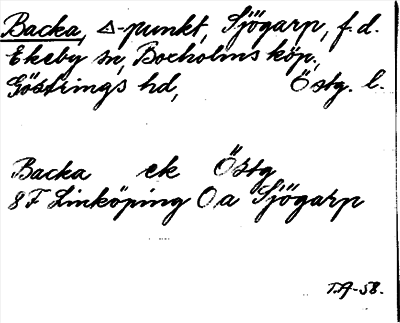 Backa, △-punkt, Sjögarp, f.d.
Ekeby sn, Boxholms köp.,
Göstrings hd, Östg. l.
Backa ek Östg
8F Linköping 0a Sjögarp
T.A-58.